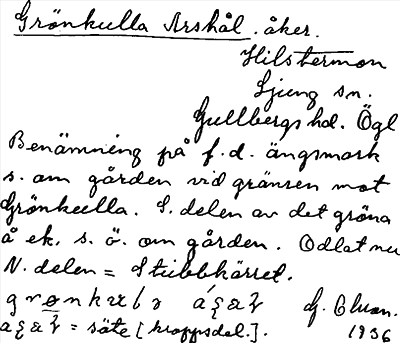 Grönkulla Arshål. åker.
Hilstermon
Ljung sn.
Gullbergs hd. Ögl
Benämning på f.d. ängsmark
s. om gården vid gränsen mot
Grönkulla. S. delen av det gröna
å ek. s. ö. om gården. Odlat nu
N. delen = Stubbkärret.
= säte [kroppsdel.].
1936